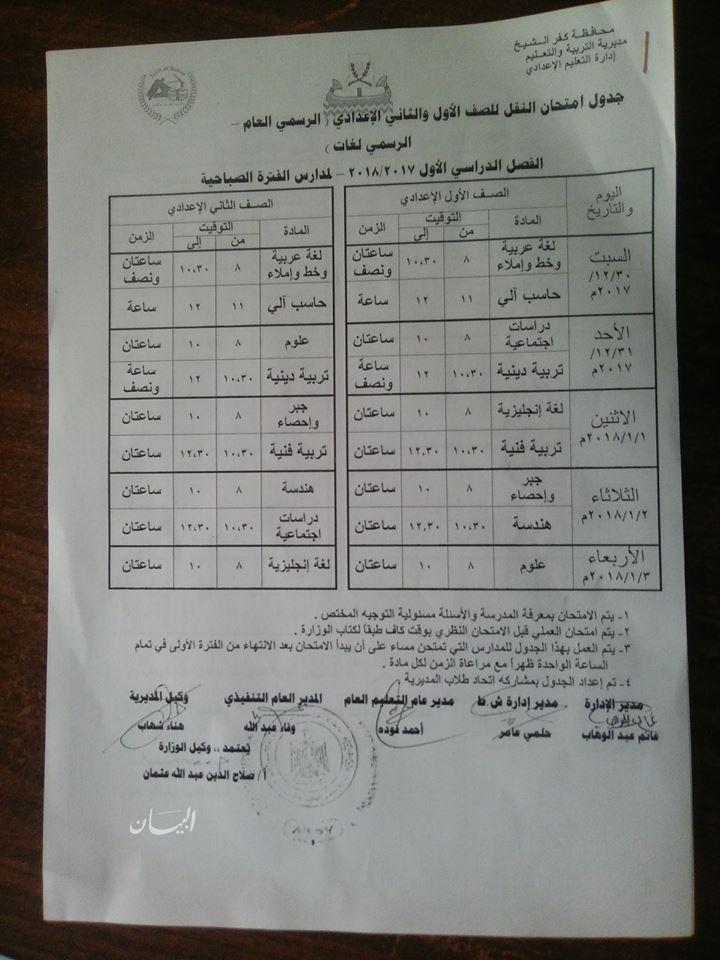 محافظة كفر الشيخ
مديرية التربية والتعليم
إدارة التعليم الإعدادي
جدول امتحان النقل للصف الأول والثاني الإعدادي ( الرسمي العام –
الرسمي لغات )
الفصل الدراسي الأول ٢٠١٨/٢٠١٧ – لمدارس الفترة الصباحية
اليوم والتاريخ الصف الأول الإعدادي الصف الثاني الإعدادي
المادة التوقيت الزمن المادة التوقيت الزمن
من إلى من إلى
السبت ١٢/٣٠/ ٢٠١٧م
لغة عربية وخط وإملاء ٨ ١٠،٣٠ ساعتان ونصف لغة عربية وخط وإملاء ٨ ١٠،٣٠ ساعتان ونصف
حاسب آلي ١١ ١٢ ساعة حاسب آلي ١١ ١٢ ساعة
الأحد ١٢/٣١/ ٢٠١٧م
دراسات اجتماعية ٨ ١٠ ساعتان علوم ٨ ١٠ ساعتان
تربية دينية ١٠،٣٠ ١٢ ساعة ونصف تربية دينية ١٠،٣٠ ١٢ ساعة ونصف
الاثنين ٢٠١٨/١/١م
لغة إنجليزية ٨ ١٠ ساعتان جبر وإحصاء ٨ ١٠ ساعتان
تربية فنية ١٠،٣٠ ١٢،٣٠ ساعتان تربية فنية ١٠،٣٠ ١٢،٣٠ ساعتان
الثلاثاء ٢٠١٨/١/٢م
جبر وإحصاء ٨ ١٠ ساعتان هندسة ٨ ١٠ ساعتان
هندسة ١٠،٣٠ ١٢،٣٠ ساعتان دراسات اجتماعية ١٠،٣٠ ١٢،٣٠ ساعتان
الأربعاء ٢٠١٨/١/٣م
علوم ٨ ١٠ ساعتان لغة إنجليزية ٨ ١٠ ساعتان
١- يتم الامتحان بمعرفة المدرسة والأسئلة مسئولية التوجيه المختص .
٢- يتم امتحان العملي قبل الامتحان النظري بوقت كاف طبقاً لكتاب الوزارة .
٣- يتم العمل بهذا الجدول للمدارس التي تمتحن مساء على أن يبدأ الامتحان بعد الانتهاء من الفترة الأولى في تمام
الساعة الواحدة ظهراً مع مراعاة الزمن لكل مادة .
٤ - تم إعداد الجدول بمشاركه اتحاد طلاب المديرية
مدير الإدارة مدير إدارة ش.ط مدير عام التعليم العام المدير العام التنفيذي وكيل المديرية
غانم عبد الوهاب حلمي عامر أحمد فوده وفاء عبد الله هناء شهاب
يُعتمد ،، وكيل الوزارة
أ/ صلاح الدين عبد الله عثمان
البيان